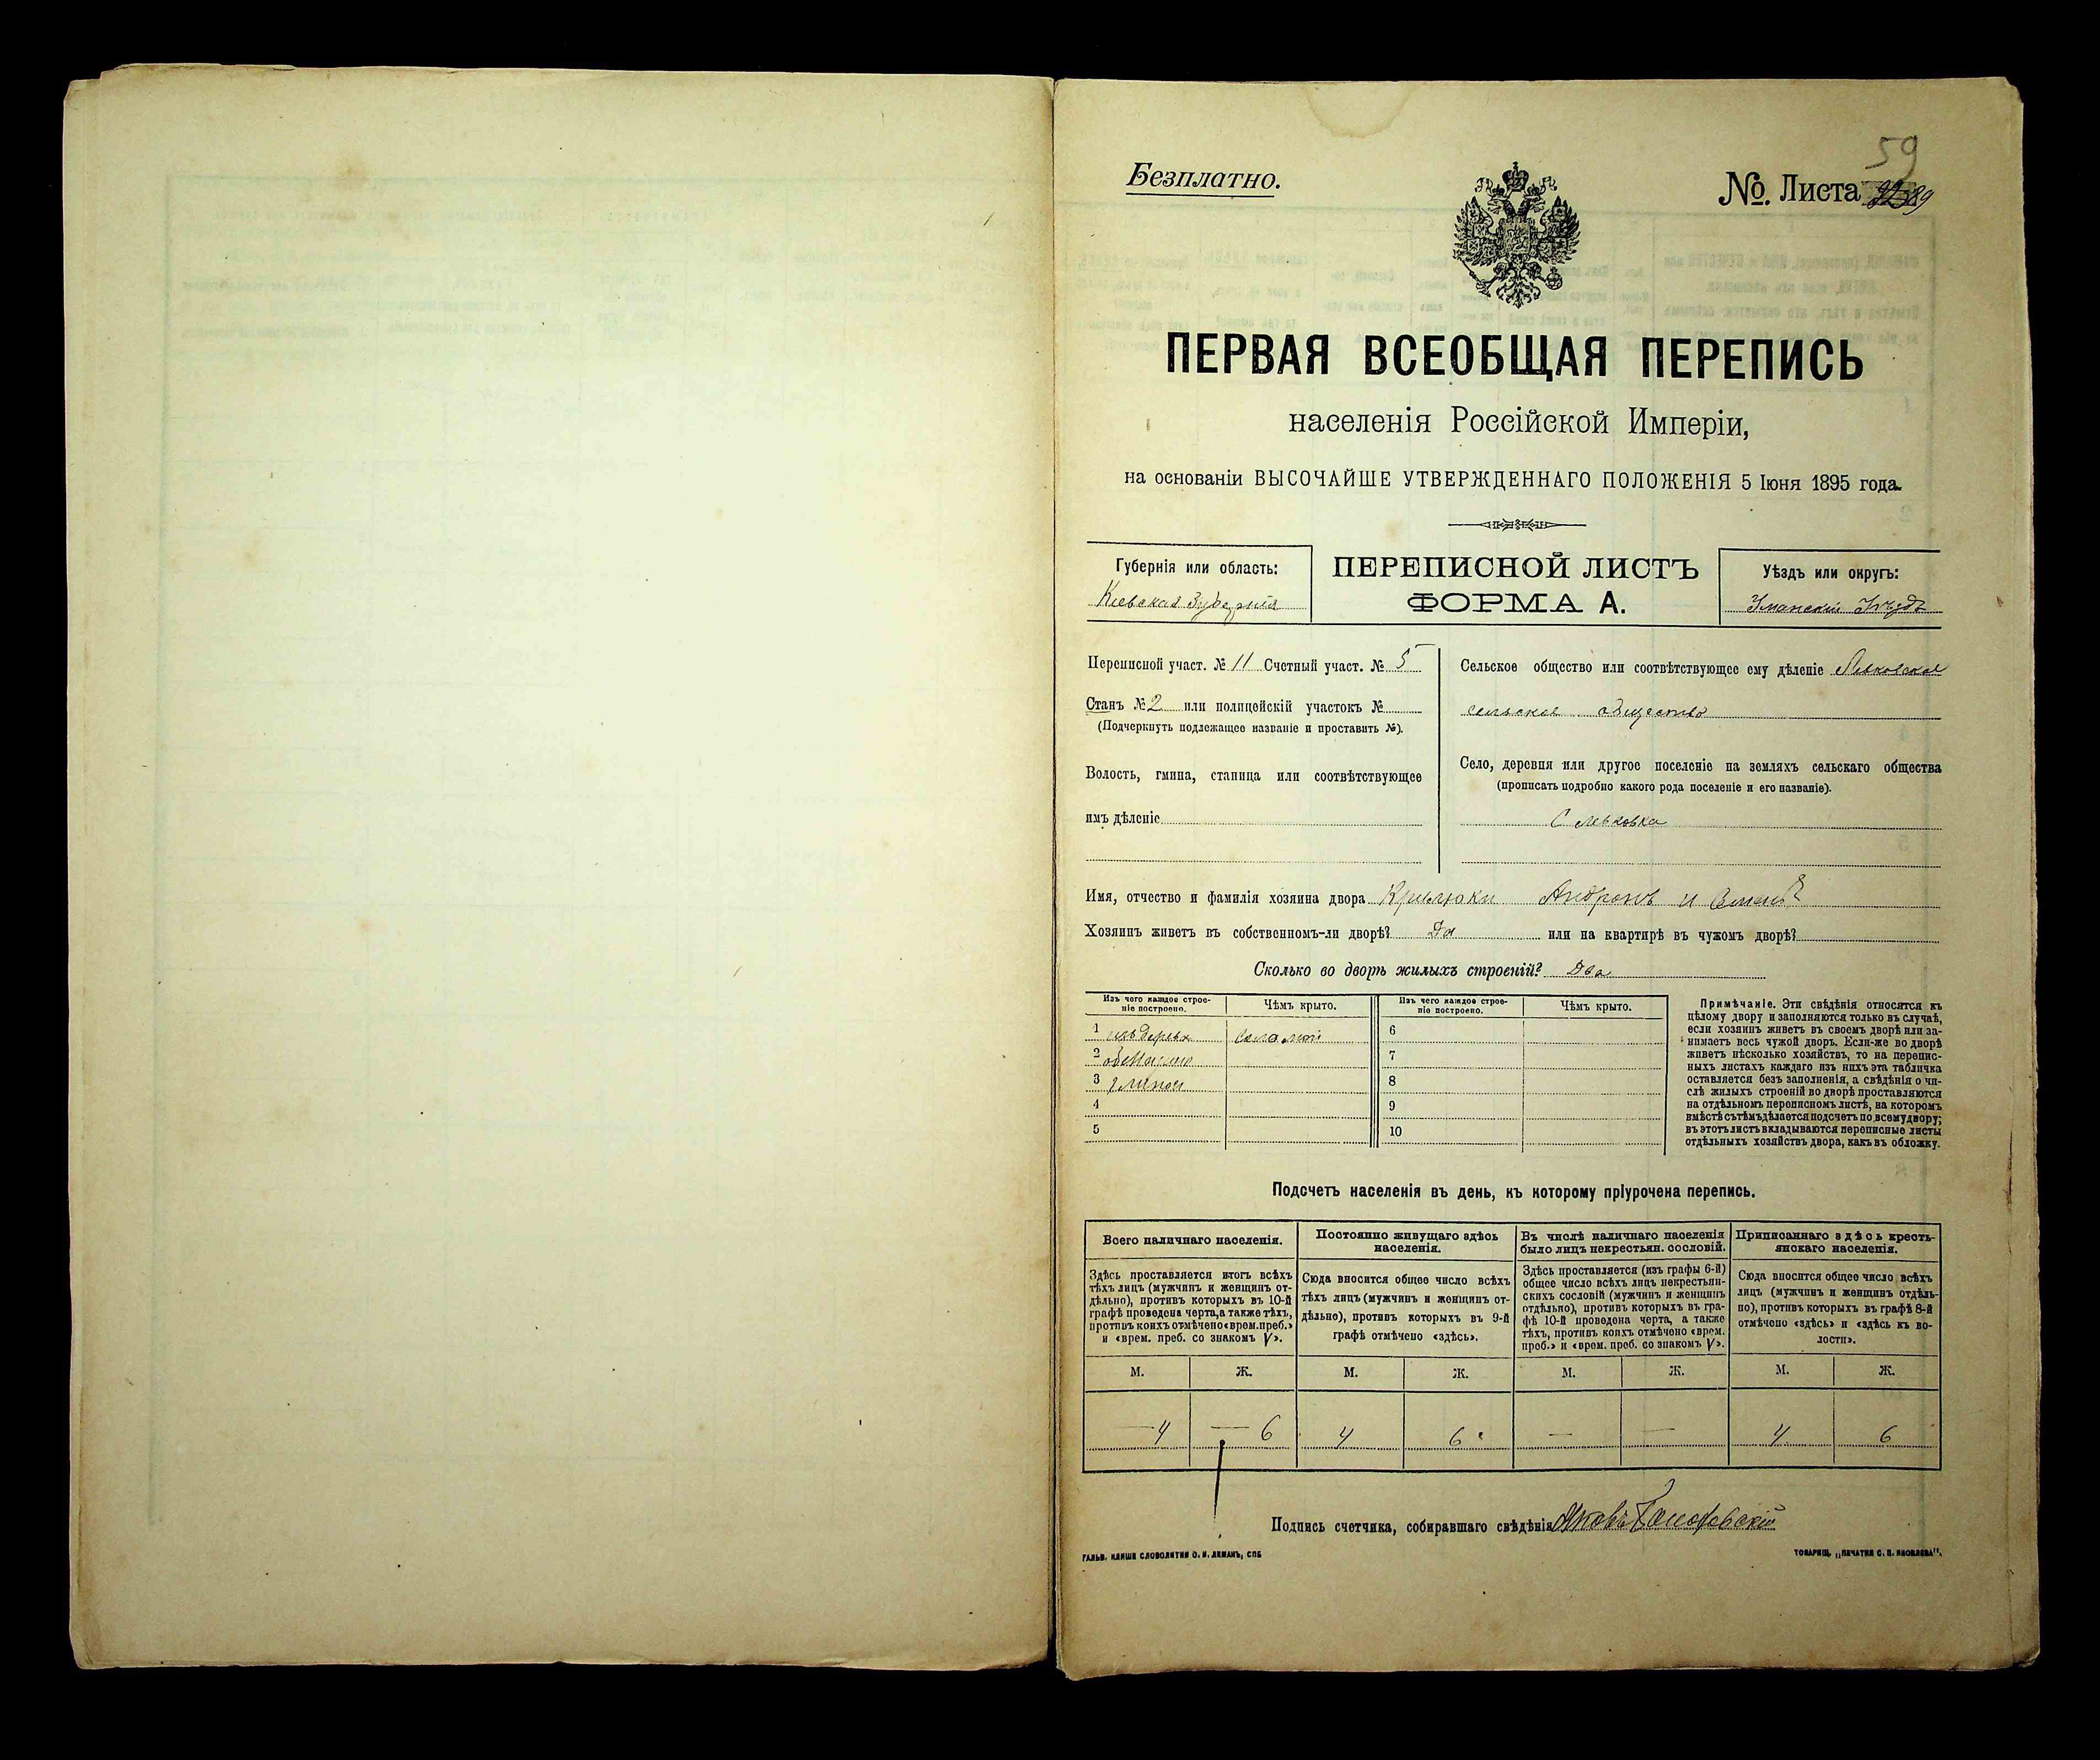 59
Безплатно.
No. Листа 89
ПЕРВАЯ ВСЕОБЩАЯ ПЕРЕПИСЬ
населенія Россійской Имперіи,
на основаніи ВЫСОЧАЙШЕ УТВЕРЖДЕННАГО ПОЛОЖЕНІЯ 5 Іюня 1895 года.
Губернія или область:
Кіевская Губернія
ПЕРЕПИСНОЙ ЛИСТЪ
ФОРМА А.
Уѣздъ или округъ:
Уманскій Уѣздъ
Переписной участ. № 11 Счетный участ. № 5
Станъ № 2 или полицейскій участокъ №
(Подчеркнуть подлежащее названіе и проставить №).
Волость, гмина, станица или соотвѣтствующее
имъ дѣленіе
Сельское общество или соотвѣтствующее ему дѣленіе Левковское
сельское общество
Село, деревня или другое поселеніе на земляхъ сельскаго общества
(прописать подробно какого рода поселеніе и его названіе).
С Левковка
Имя, отчество и фамилія хозяина двора Андронъ и
Хозяинъ живетъ въ собственномъ-ли дворѣ? Да или на квартирѣ въ чужомъ дворѣ?
Сколько во дворѣ жилыхъ строеній? Два
Изъ чего каждое строе-
ніе построено.
Чѣмъ крыто.
Изъ чего каждое строе-
ніе построено.
Чѣмъ крыто.
1 изъ дерева Соломой 6
2 7
3 глиной 8
4 9
5 10
Примѣчаніе. Эти свѣдѣнія относятся къ
цѣлому двору и заполняются только въ случаѣ,
если хозяинъ живетъ въ своемъ дворѣ или за-
нимаетъ весь чужой дворъ. Если-же во дворѣ
живетъ нѣсколько хозяйствъ, то на перепис-
ныхъ листахъ каждаго изъ нихъ эта табличка
оставляется безъ заполненія, а свѣдѣнія о чи-
слѣ жилыхъ строеній во дворѣ проставляются
на отдѣльномъ переписномъ листѣ, на которомъ
вмѣстѣ съ тѣмъ дѣлается подсчетъ по всему двору;
въ этотъ листъ вкладываются переписные листы
отдѣльныхъ хозяйствъ двора, какъ въ обложку.
Подсчетъ населенія въ день, къ которому пріурочена перепись.
Всего наличнаго населенія.
Здѣсь проставляется итогъ всѣхъ
тѣхъ лицъ (мужчинъ и женщинъ от-
дѣльно), противъ которыхъ въ 10-й
графѣ проведена черта, а также тѣхъ,
противъ коихъ отмѣчено «врем. преб.»
и «врем. преб. со знакомъ V».
Постоянно живущаго здѣсь
населенія.
Сюда вносится общее число всѣхъ
тѣхъ лицъ (мужчинъ и женщинъ от-
дѣльно), противъ которыхъ въ 9-й
графѣ отмѣчено «здѣсь».
Въ числѣ наличнаго населенія
было лицъ некрестьян. сословій.
Здѣсь проставляется (изъ графы 6-й)
общее число всѣхъ лицъ некрестьян-
скихъ сословій (мужчинъ и женщинъ
отдѣльно), противъ которыхъ въ гра-
фѣ 10-й проведена черта, а также
тѣхъ, противъ коихъ отмѣчено «врем.
преб.» и «врем. преб. со знакомъ V».
Приписаннаго здѣсь кресть-
янскаго населенія.
Сюда вносится общее число всѣхъ
лицъ (мужчинъ и женщинъ отдѣль-
но), противъ которыхъ въ графѣ 8-й
отмѣчено «здѣсь» и «здѣсь къ во-
лости».
М. Ж. М. Ж. М. Ж. М. Ж.
— 4 — 6 4 6 — — 4 6
Подпись счетчика, собиравшаго свѣдѣнія
ГАЛЬВ. КЛИШЕ СЛОВОЛИТНИ О. И. ЛЕМАНЪ, СПБ
ТОВАРИЩ. „ПЕЧАТНЯ С. П. ЯКОВЛЕВА".